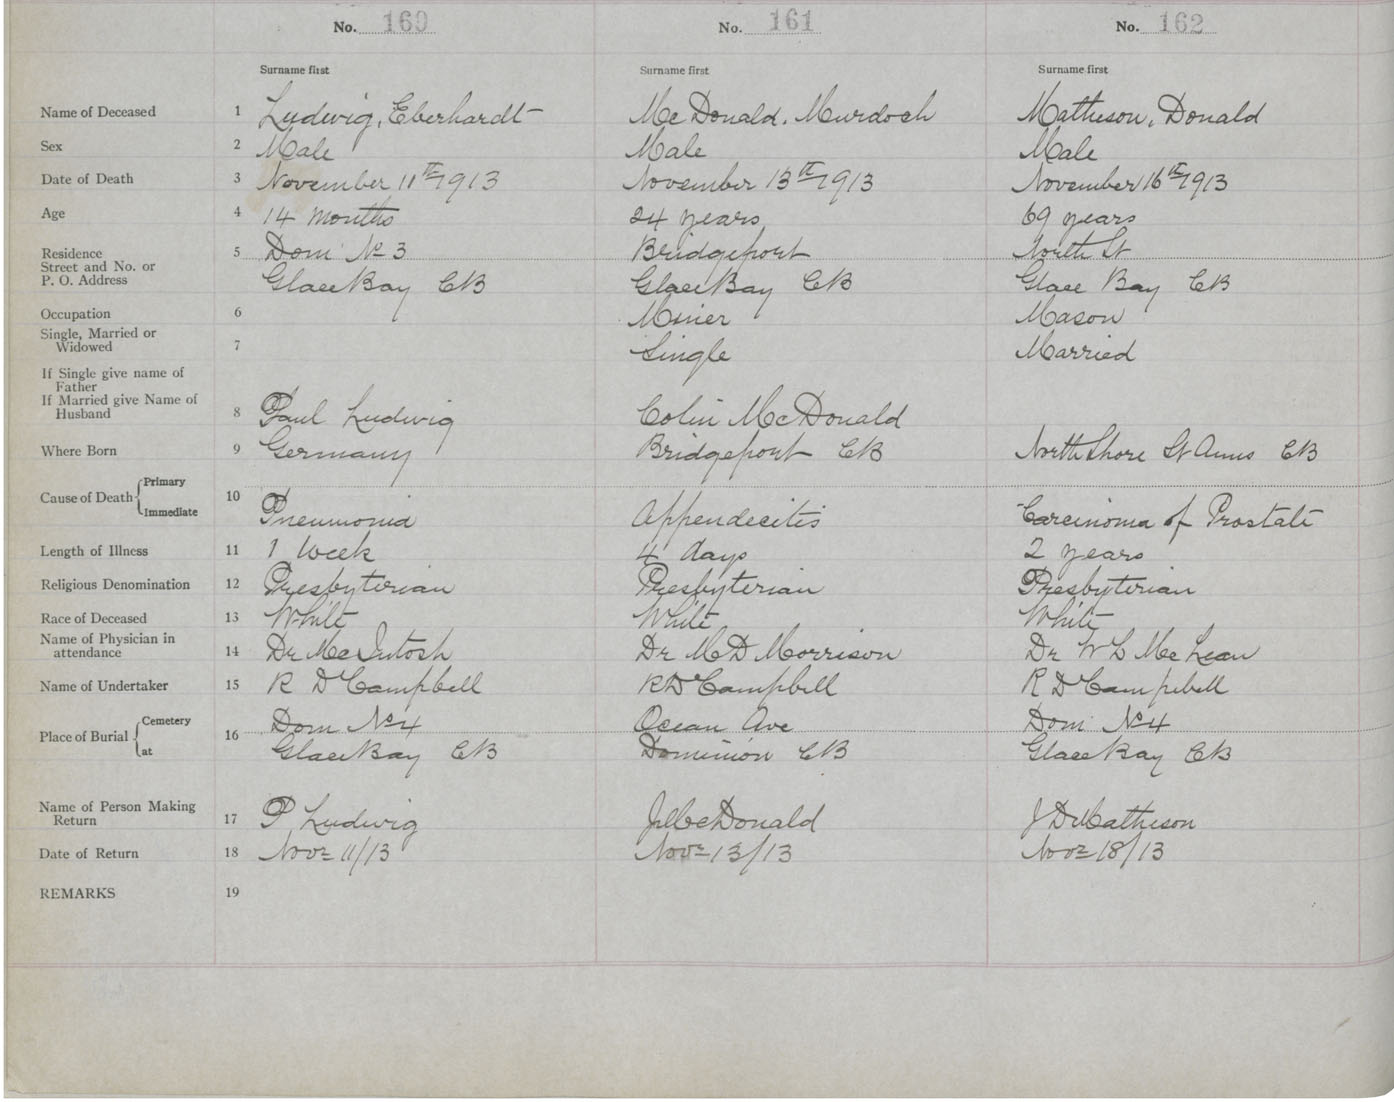 No. 160 No. 161 No. 162
Surname first Surname first Surname first
Name of Deceased 1 Ludwig, Eberhardt McDonald, Murdoch Matheson, Donald
Sex 2 Male Male Male
Date of Death 3 November 11th 1913 November 13th 1913 November 16th 1913
Age 4 14 months 24 years 69 years
Residence 5 Dom No 3 Bridgeport North St
Street and No. or
P. O. Address Glace Bay CB Glace Bay CB Glace Bay CB
Occupation 6 Miner Mason
Single, Married or
Widowed 7 Single Married
If Single give name of
Father
If Married give Name of
Husband 8 Paul Ludwig Colin McDonald
Where Born 9 Germany Bridgeport CB North Shore St Anns CB
Primary
Cause of Death 10
Immediate Pneumonia Appendecitis Carcinoma of Prostate
Length of Illness 11 1 week 4 days 2 years
Religious Denomination 12 Presbyterian Presbyterian Presbyterian
Race of Deceased 13 White White White
Name of Physician in
attendance 14 Dr McIntosh Dr M D Morrison Dr W L McLean
Name of Undertaker 15 R D Campbell R D Campbell R D Campbell
Cemetery Dom No 4 Ocean Ave Dom No 4
Place of Burial 16
at Glace Bay CB Dominion CB Glace Bay CB
Name of Person Making
Return 17 P Ludwig J McDonald J D Matheson
Date of Return 18 Novr 11/13 Novr 13/13 Novr 18/13
REMARKS 19